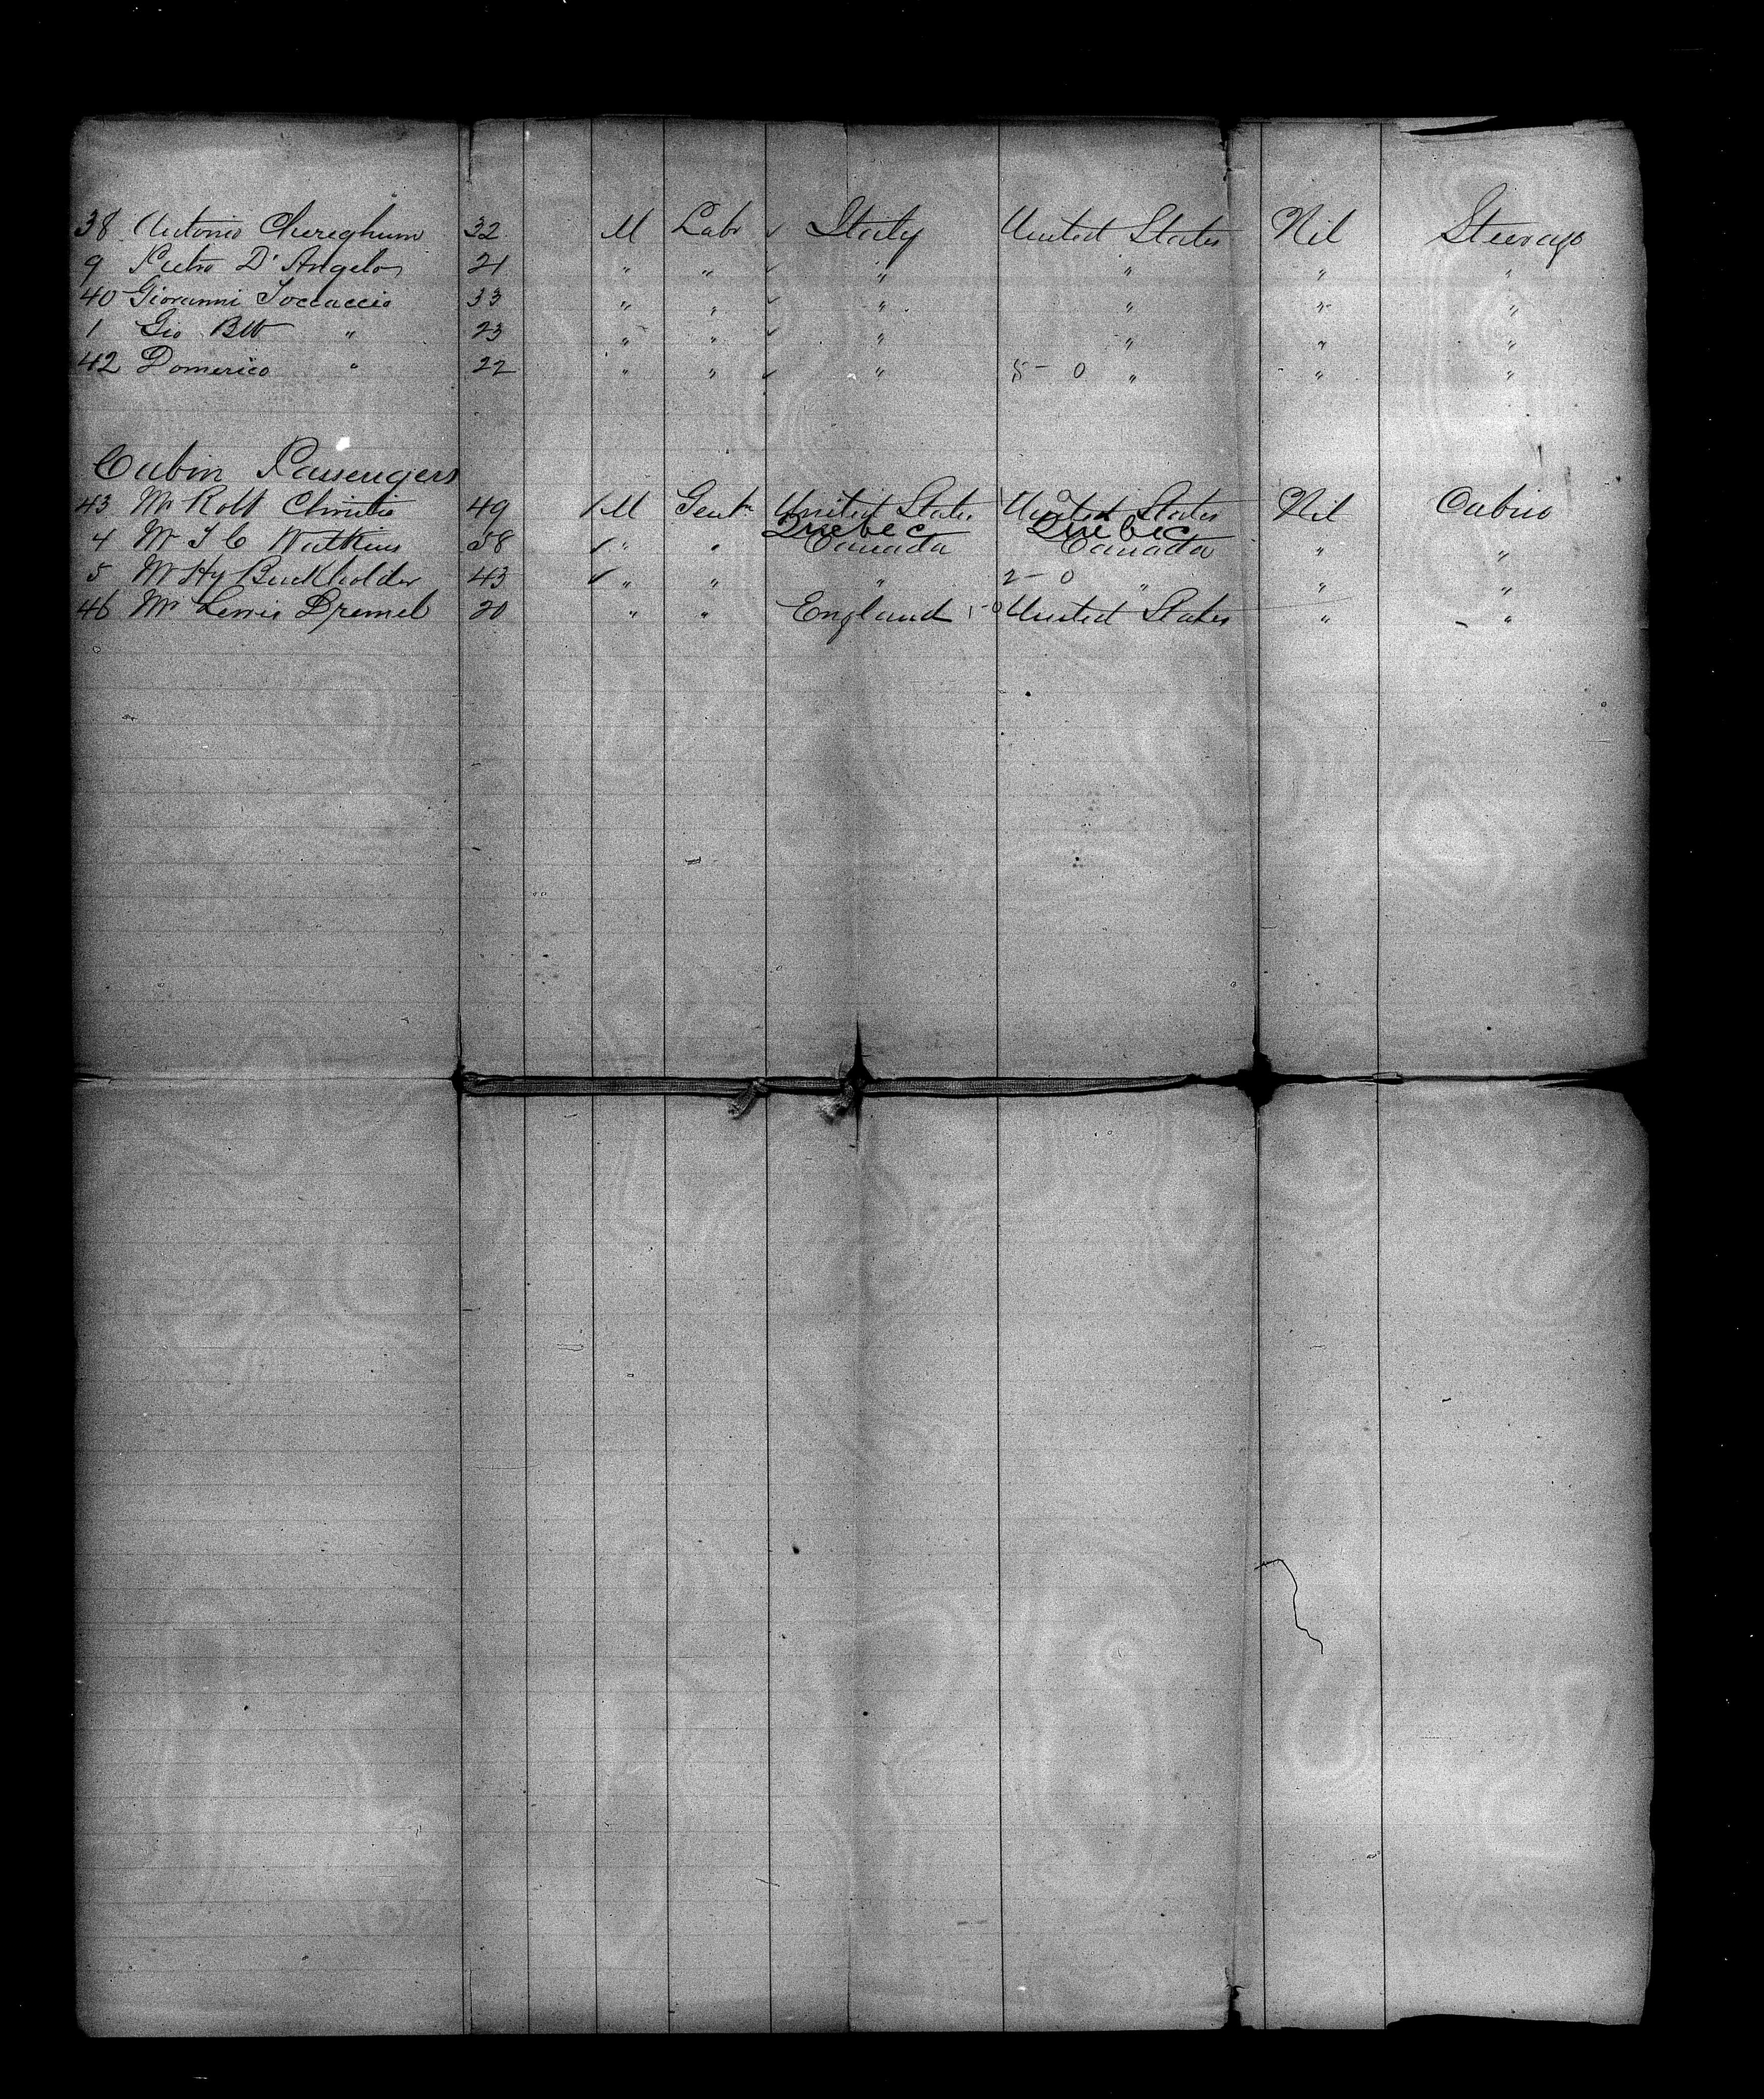 38 Antonio Chereghum 32 M Labr ✓ Italy United States Nil Steerage
9 Pietro D'Angelo 21 " " ✓ " " " "
40 Giovanni Foccaccio 33 " " ✓ " " " "
1 Gio Btt " 23 " " ✓ " " " "
42 Domenico " 22 " " ✓ " 5-0 " " "
Cabin Passengers
43 Mr Robt Christie 49 / M Gentn United States United States Nil Cabin
Quebec Quebec
4 Mr J C Watkins 58 ✓ " " Canada Canada " "
5 Mr Hy Buckholder 43 ✓ " " " 2-0 " " "
46 Mr Lewis Dremel 20 " " England 1-0 United States " "